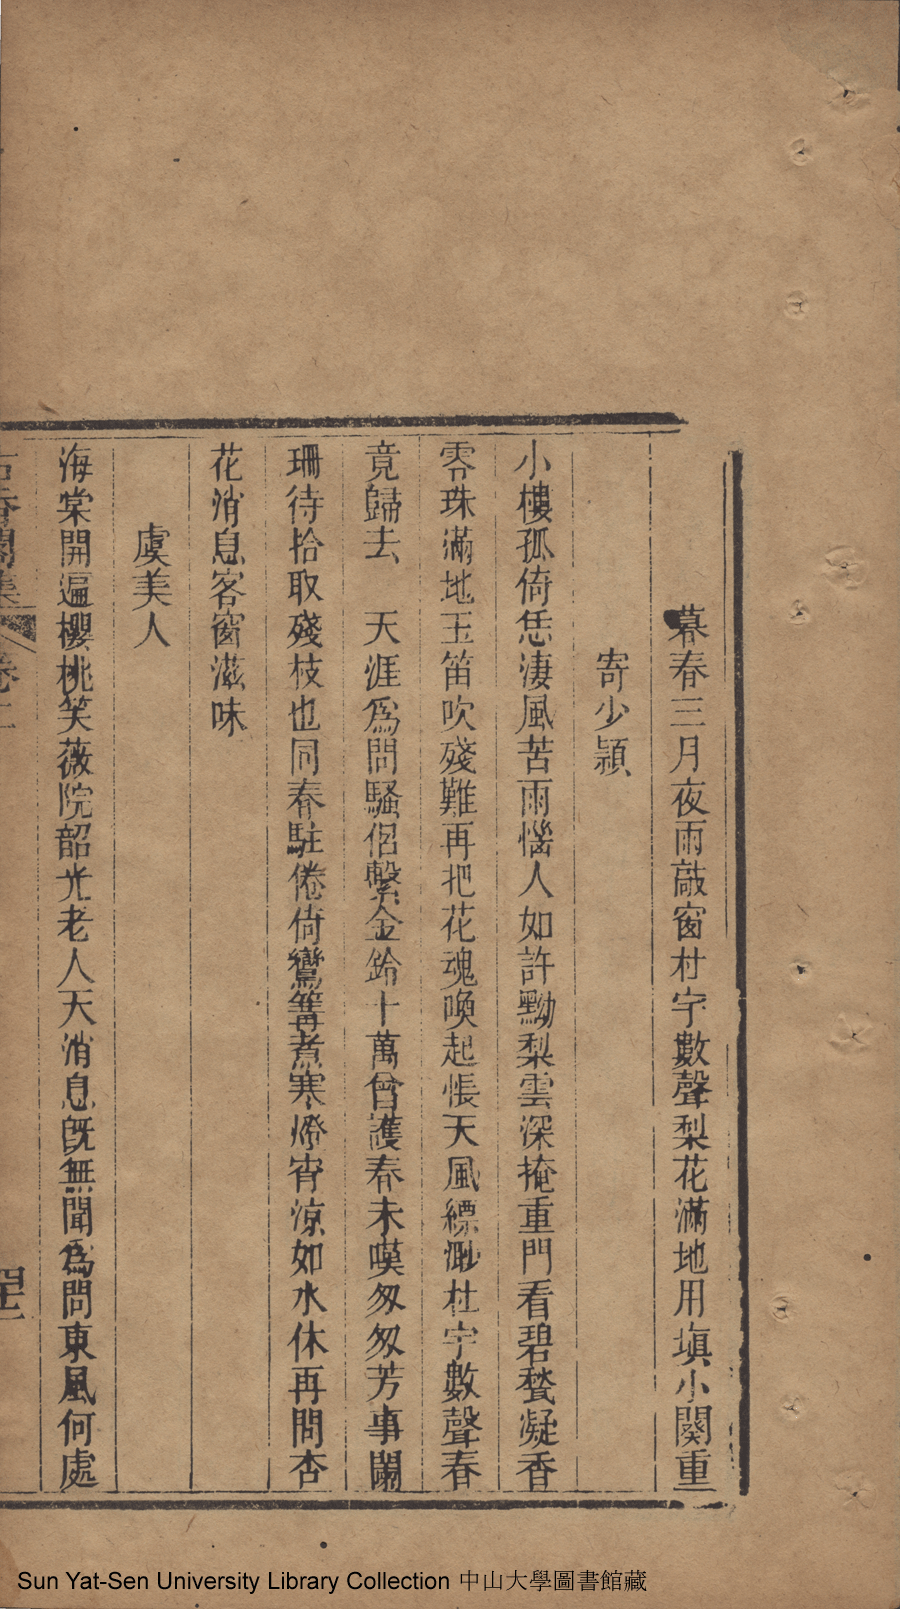 暮春三月夜雨敲窗杜宇數聲梨花滿地用塡小闋重
寄少穎
小樓孤倚恁淒風苦雨惱人如許黝梨雲深掩重門看碧甃凝香
零珠滿地玉笛吹殘難再把花魂喚起悵天風縹渺杜宇數聲春
竟歸去　天涯爲問騷侶繫金鈴十萬曾護春未嘆匆匆芳事闌
珊待拾取殘枝也同春駐倦倚鸞篝煮寒燈宵涼如水休再問杏
花消息客窗滋味
虞美人
海棠開遍櫻桃笑薇院韶光老人天消息旣無聞爲問東風何處
古香閣集 卷二
Sun Yat-Sen University Library Collection 中山大學圖書館藏